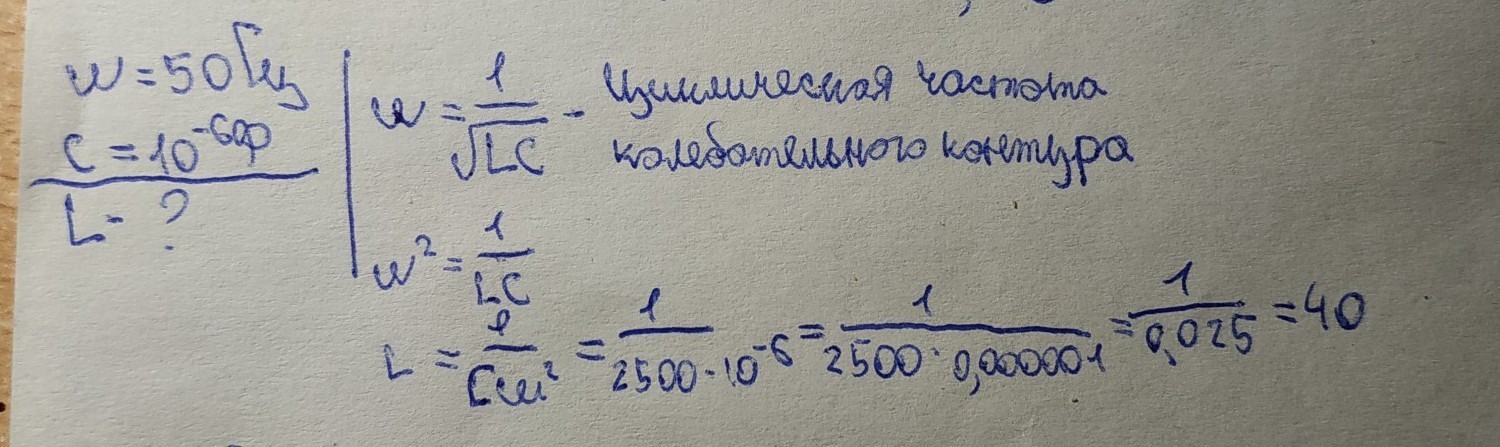 w = 50 Гц
C = 10⁻⁶ф
L - ?
w = 1/√LC - Циклическая частота
колебательного контура
w² = 1/LC
L = 1/Cw² = 1/2500·10⁻⁶ = 1/2500·0,000001 = 1/0,025 = 40